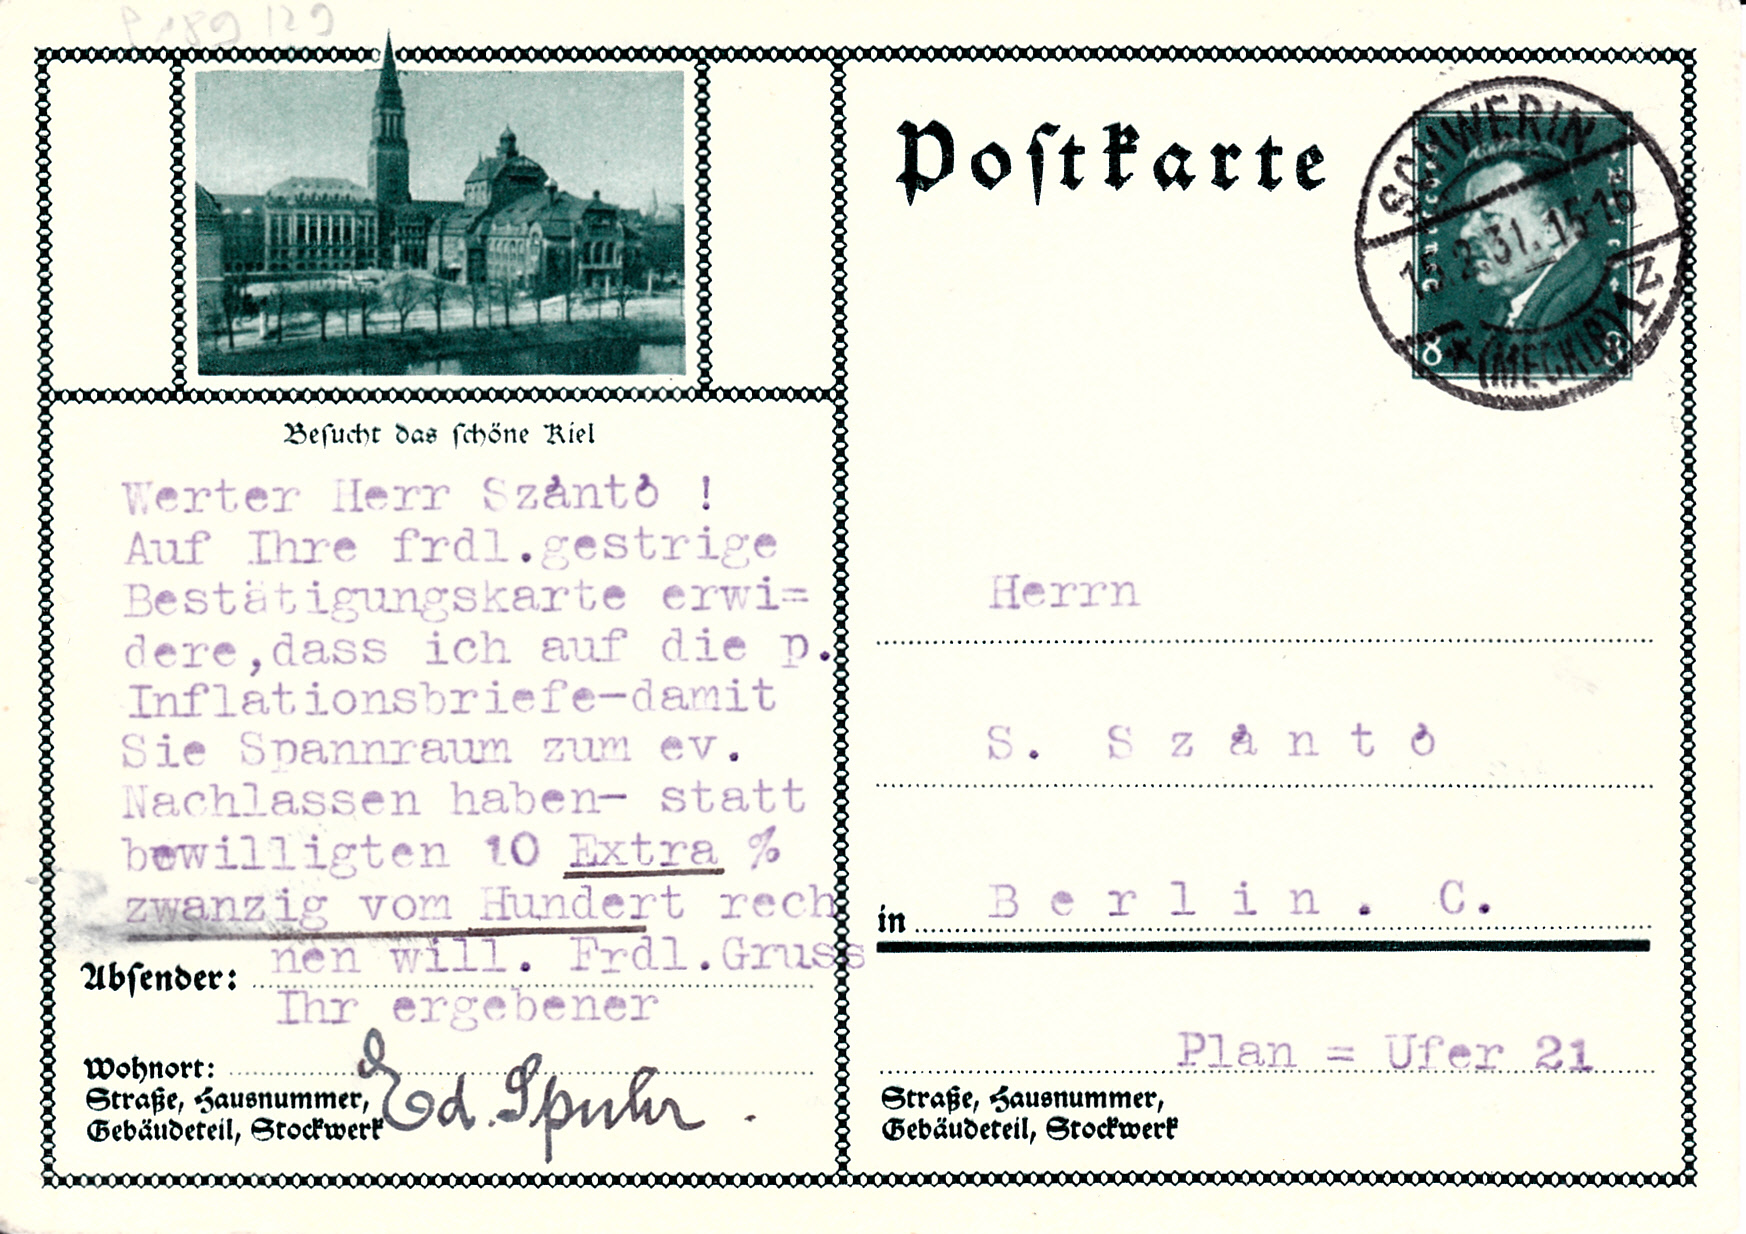 Postkarte
SCHWERIN
2.31.15-16
(MECKLB)1
8
Besucht das schöne Kiel
Werter Herr Szántó !
Auf Ihre frdl.gestrige
Bestätigungskarte erwi=
dere,dass ich auf die p.
Inflationsbriefe-damit
Sie Spannraum zum ev.
Nachlassen haben- statt
bewilligten 10 Extra %
zwanzig vom Hundert rech
nen will. Frdl.Gruss
Ihr ergebener
Ed. Spuhr.
Absender:
Wohnort:
Straße, Hausnummer,
Gebäudeteil, Stockwerk
Herrn
S. S z á n t ó
in B e r l i n . C.
Plan = Ufer 21
Straße, Hausnummer,
Gebäudeteil, Stockwerk